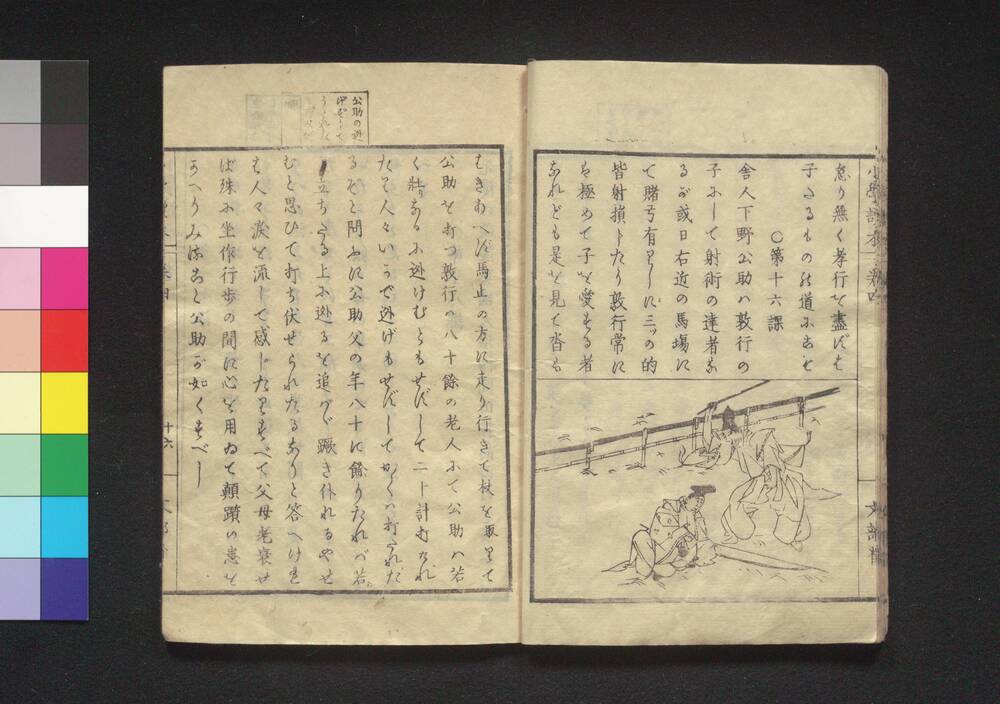 小學讀本
怠り無く孝行を盡さば
子たるものの道にあらむ
○第十六課
舎人下野公助ハ敦行の
子にして射術の達者な
るが或日右近の馬場に
て賭弓有りしに三つの的
皆射損じたり敦行常に
を極めて子を愛する者
なれども是を見て
文部省
馬止の方に走り行きて杖を取りて
公助を打つ敦行ハ八十餘の老人にて公助ハ若
く壯なるに逃けむともせずして二十計打たれ
たり人々いかで逃げもせずしてかくハ打たれた
るぞと問ふに公助父の年八十に餘りたれバ若
立ちたる上に逃るを追かバ蹶き仆れもやせ
むと思ひて打ち伏せられたるなりと答へけれ
ば人々涙を流して感じたりすべて父母老衰せ
ば殊に坐作行歩の間に心を用ゐて顛躓の患を
かへりみること公助が如くすべし
公助の逃
十六